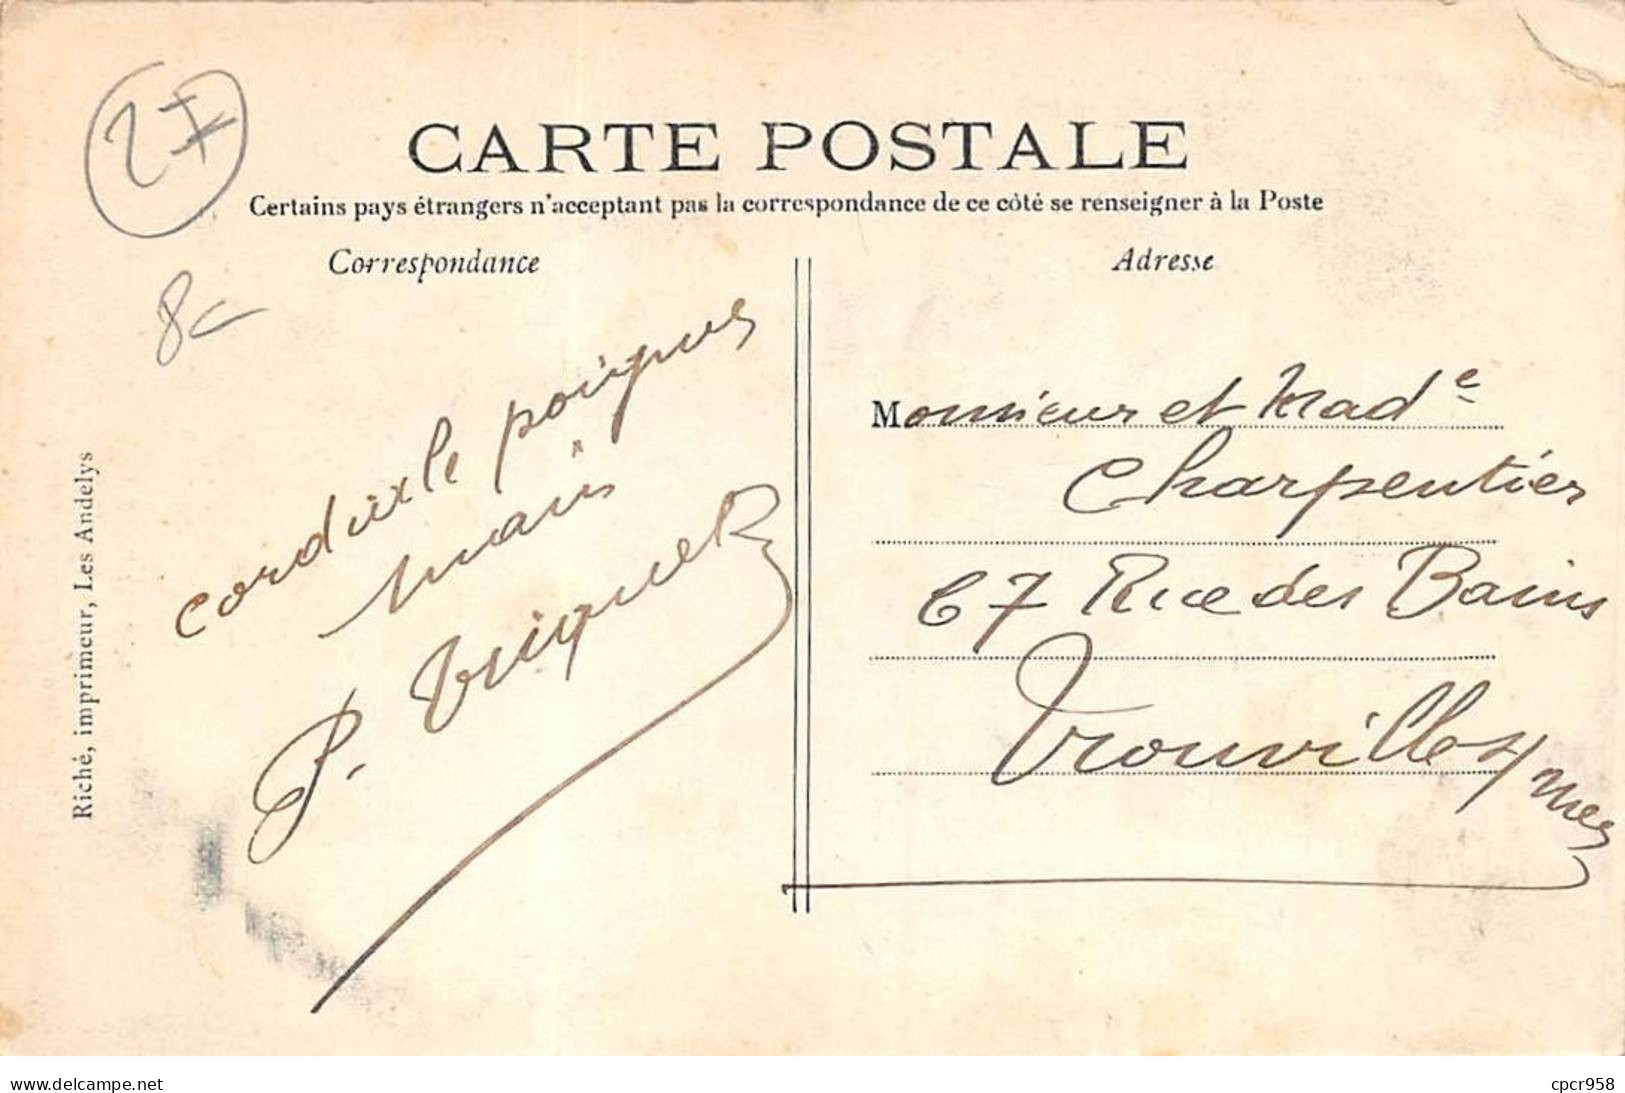 27
CARTE POSTALE
Certains pays étrangers n'acceptant pas la correspondance de ce côté se renseigner à la Poste
Correspondance
Adresse
8
cordiale poignes
mains
P. Triquet
Monsieur et Made
Charpentier
67 Rue des Bains
Trouville s/ mer
Riché, imprimeur, Les Andelys
www.delcampe.net
cpcr958